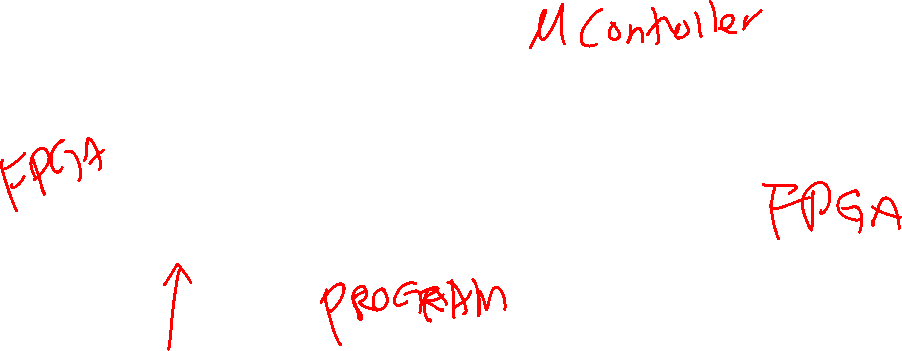 μController
FPGA
FPGA
PROGRAM